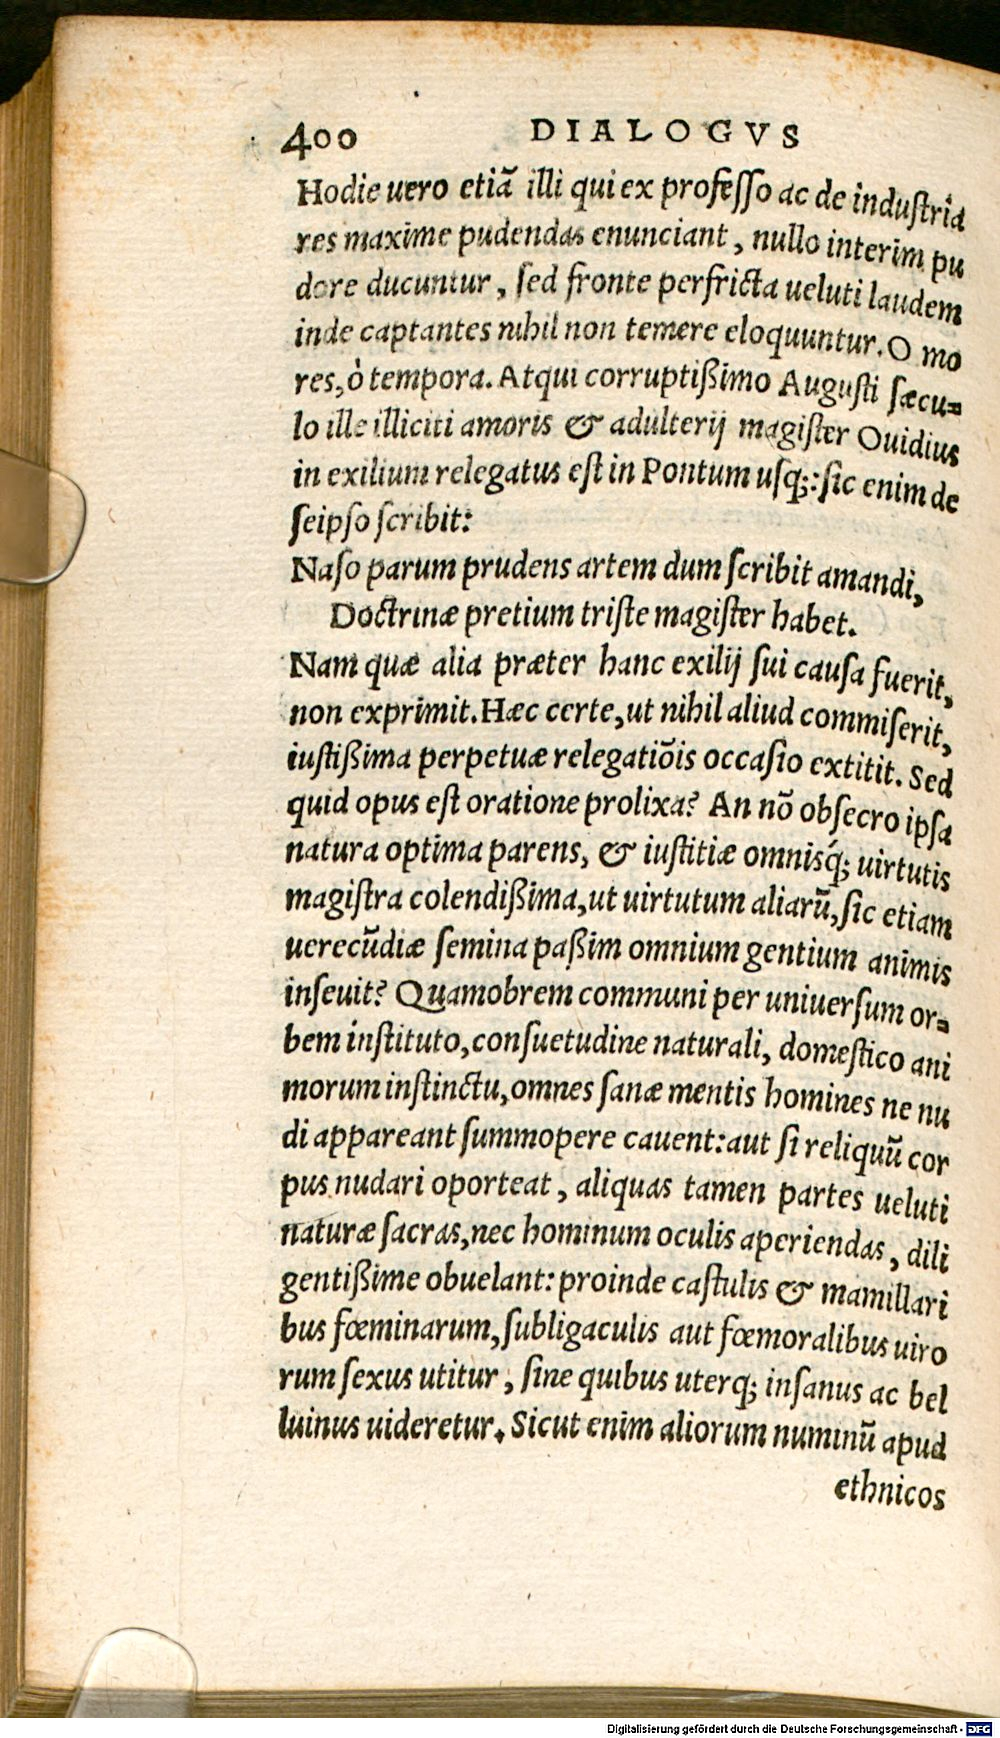 400 DIALOGVS
Hodie uero etiã illi qui ex professo ac de industria
res maxime pudendas enunciant, nullo interim pu
dore ducuntur, sed fronte perfricta ueluti laudem
inde captantes nihil non temere eloquuntur. O mo
res, ò tempora. Atqui corruptißimo Augusti sæcu-
lo ille illiciti amoris & adulterij magister Ouidius
in exilium relegatus est in Pontum usq;: sic enim de
seipso scribit:
Naso parum prudens artem dum scribit amandi,
Doctrinæ pretium triste magister habet.
Nam quæ alia præter hanc exilij sui causa fuerit,
non exprimit. Hæc certe, ut nihil aliud commiserit,
iustißima perpetuæ relegatiõis occasio extitit. Sed
quid opus est oratione prolixa? An nõ obsecro ipsa
natura optima parens, & iustitiæ omnisq́; uirtutis
magistra colendißima, ut uirtutum aliarũ, sic etiam
uerecũdiæ semina paßim omnium gentium animis
inseuit? Quamobrem communi per uniuersum or-
bem instituto, consuetudine naturali, domestico ani
morum instinctu, omnes sanæ mentis homines ne nu
di appareant summopere cauent: aut si reliquũ cor
pus nudari oporteat, aliquas tamen partes ueluti
naturæ sacras, nec hominum oculis aperiendas, dili
gentißime obuelant: proinde castulis & mamillari
bus fœminarum, subligaculis aut fœmoralibus uiro
rum sexus utitur, sine quibus uterq; insanus ac bel
luinus uideretur. Sicut enim aliorum numinũ apud
ethnicos
Digitalisierung gefördert durch die Deutsche Forschungsgemeinschaft - DFG